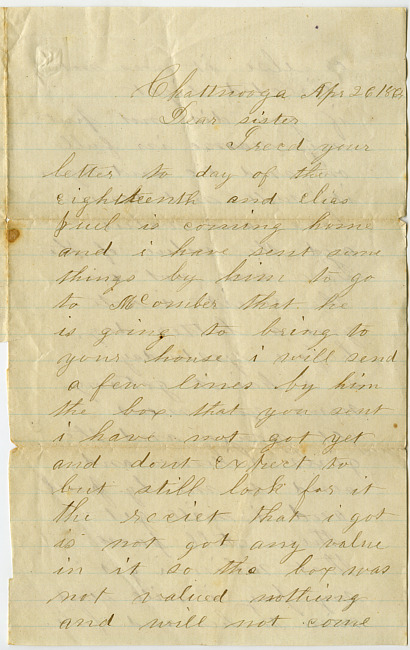 Chattnooga Apr 20 186
Dear sister
I recd your
letter to day of the
eighteenth and elias
is coming home
and i have sent some
things by him to go
to McComber that he
is going to bring to
your house i will send
a few lines by him
the box that you sent
i have not got yet
and dont expect to
but still look for it
the reciet that i got
is not got any value
in it so the box was
not valued nothing
and will not come